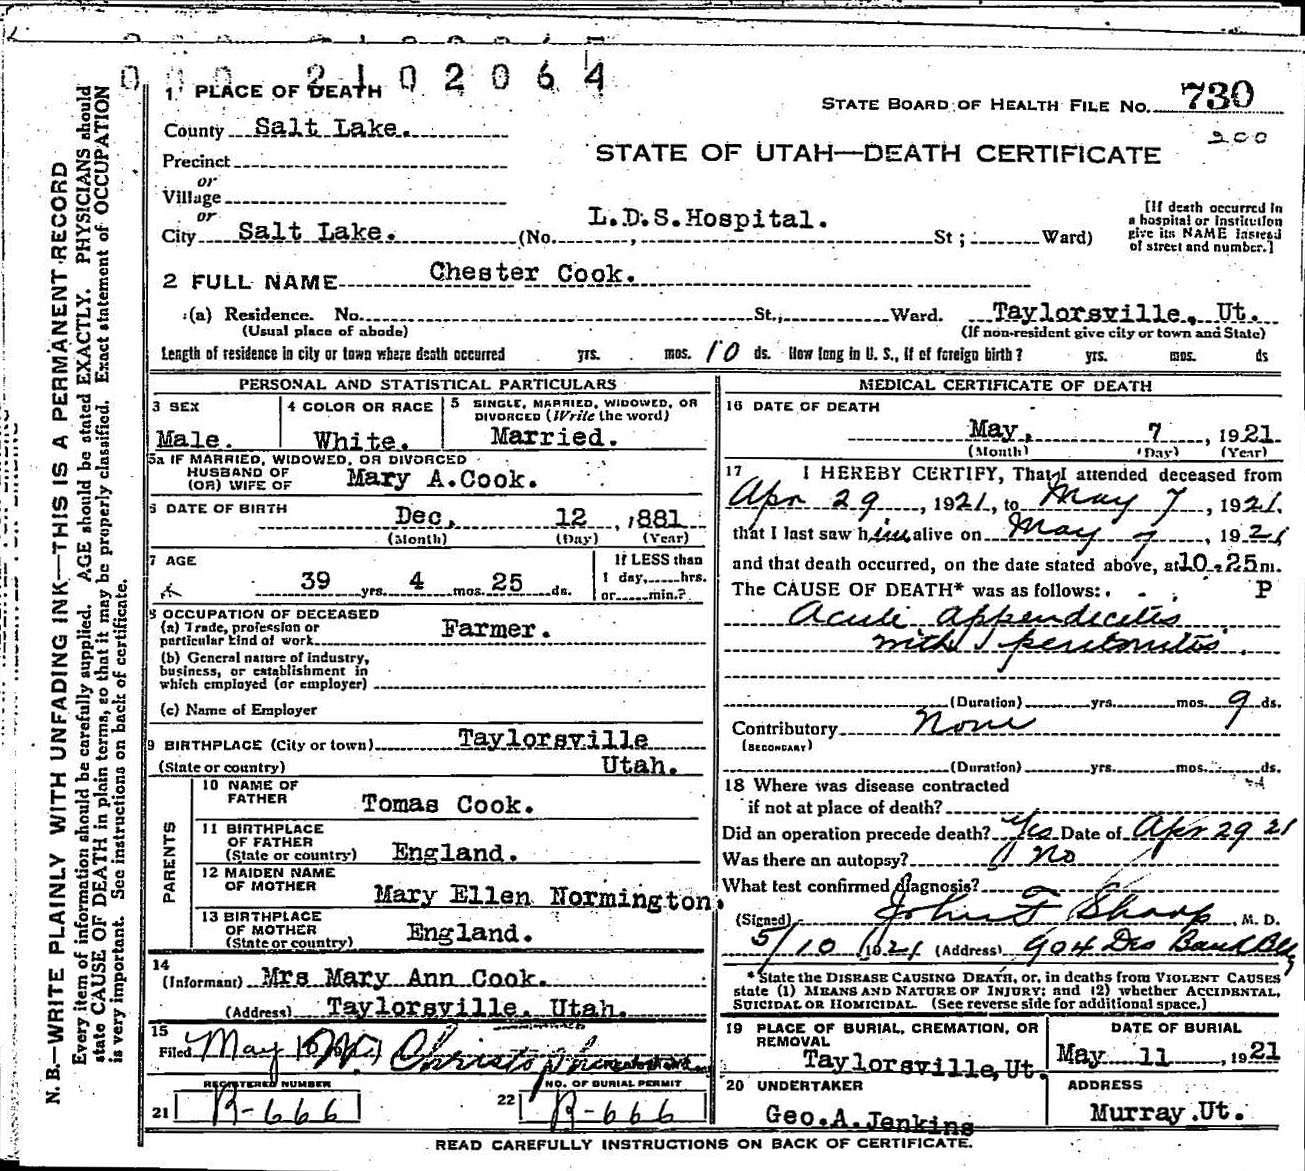 0 0 0 2 1 0 2 0 6 4
1 PLACE OF DEATH
STATE BOARD OF HEALTH FILE NO. 730
200
County Salt Lake.
STATE OF UTAH—DEATH CERTIFICATE
Precinct
or
Village
or
City Salt Lake. (No. , L.D.S.Hospital. St ; Ward)
[If death occurred in
a hospital or institution
give its NAME instead
of street and number.]
2 FULL NAME Chester Cook.
(a) Residence. No. St., Ward. Taylorsville, Ut.
(Usual place of abode) (If non-resident give city or town and State)
Length of residence in city or town where death occurred yrs. mos. 10 ds. How long in U. S., if of foreign birth? yrs. mos. ds
PERSONAL AND STATISTICAL PARTICULARS
3 SEX
Male.
4 COLOR OR RACE
White.
5 SINGLE, MARRIED, WIDOWED, OR
DIVORCED (Write the word)
Married.
5a IF MARRIED, WIDOWED, OR DIVORCED
HUSBAND OF
(OR) WIFE OF Mary A.Cook.
6 DATE OF BIRTH Dec, 12 , 1881
(Month) (Day) (Year)
7 AGE
39 yrs. 4 mos. 25 ds.
If LESS than
1 day, hrs.
or min.?
8 OCCUPATION OF DECEASED
(a) Trade, profession or
particular kind of work Farmer.
(b) General nature of industry,
business, or establishment in
which employed (or employer)
(c) Name of Employer
9 BIRTHPLACE (City or town) Taylorsville
(State or country) Utah.
PARENTS
10 NAME OF
FATHER Tomas Cook.
11 BIRTHPLACE
OF FATHER
(State or country) England.
12 MAIDEN NAME
OF MOTHER Mary Ellen Normington.
13 BIRTHPLACE
OF MOTHER
(State or country) England.
14
(Informant) Mrs Mary Ann Cook.
(Address) Taylorsville. Utah.
15
Filed May
21 REGISTERED NUMBER
R-666
22 NO. OF BURIAL PERMIT
R-666
MEDICAL CERTIFICATE OF DEATH
16 DATE OF DEATH
May, 7 , 1921
(Month) (Day) (Year)
17 I HEREBY CERTIFY, That I attended deceased from
Apr 29 , 1921, to May 7 , 1921,
that I last saw him alive on May 7 , 1921
and that death occurred, on the date stated above, at 10.25 m.
The CAUSE OF DEATH* was as follows: P
Acute appendicitis
with peritonitis.
(Duration) yrs. mos. 9 ds.
Contributory None
(SECONDARY)
(Duration) yrs. mos. ds.
18 Where was disease contracted
if not at place of death?
Did an operation precede death? Yes Date of Apr 29 21
Was there an autopsy? No
What test confirmed diagnosis?
(Signed) John F Sharp M. D.
5/10 1921 (Address) 904 Des Bank Bldg
* State the DISEASE CAUSING DEATH, or, in deaths from VIOLENT CAUSES
state (1) MEANS AND NATURE OF INJURY; and (2) whether ACCIDENTAL,
SUICIDAL OR HOMICIDAL. (See reverse side for additional space.)
19 PLACE OF BURIAL, CREMATION, OR
REMOVAL
Taylorsville, Ut.
DATE OF BURIAL
May 11 , 1921
20 UNDERTAKER
Geo.A.Jenkins
ADDRESS
Murray.Ut.
READ CAREFULLY INSTRUCTIONS ON BACK OF CERTIFICATE.
N. B.—WRITE PLAINLY WITH UNFADING INK—THIS IS A PERMANENT RECORD
Every item of information should be carefully supplied. AGE should be stated EXACTLY. PHYSICIANS should
state CAUSE OF DEATH in plain terms, so that it may be properly classified. Exact statement of OCCUPATION
is very important. See instructions on back of certificate.